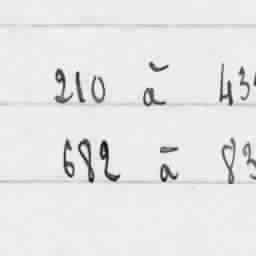 210 à 43
682 à 83